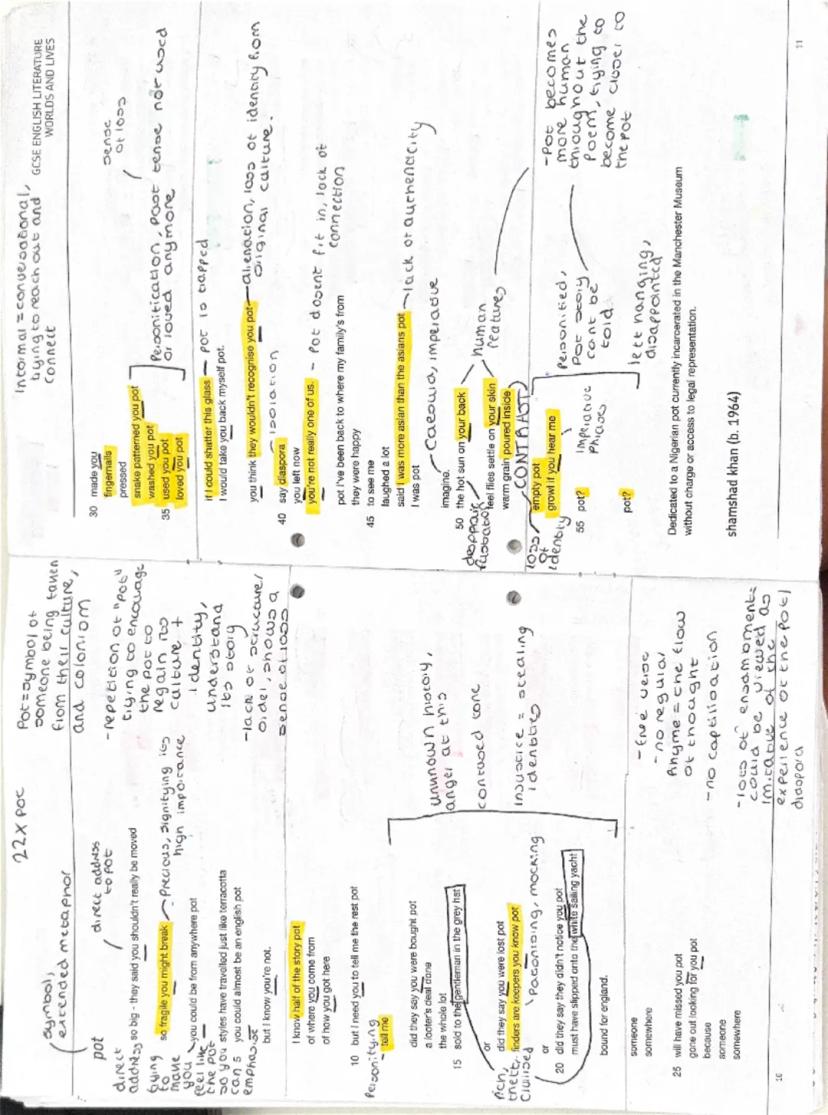 22x pot
symbol,
extended metaphor
pot
direct address
to pot
Pot=symbol of
someone being taken
from their culture,
and colonism
direct
address
so big - they said you shouldn't really be moved
so fragile you might break
Precious, signifying its
high importance
trying
to
make
you
feel like
the pot
you could be from anywhere pot
styles have travelled just like terracotta
5 you could almost be an english pot
emphasis
but I know you're not.
-repetition of "pot"
trying to encourage
the pot to
regain its
culture +
identity,
understand
its story
-lack of structure/
order, shows a
sense of loss
I know half of the story pot
of where you come from
of how you got here
10 but I need you to tell me the rest pot
Personifying
tell me
did they say you were bought pot
a looter's deal done
the whole lot
15 sold to the gentleman in the grey hat
or
did they say you were lost pot
finders are keepers you know pot
Patronising, mocking
rich,
theft,
civilised
or
20 did they say they didn't notice you pot
must have slipped onto the white sailing yacht
bound for england.
unknown history,
anger at this
confused tone
Injustice = stealing
identities
someone
somewhere
25 will have missed you pot
gone out looking for you pot
because
someone
somewhere
-free verse
-no regular
rhyme=the flow
of thought
-no captilisation
-lots of enjambment=
could be viewed as
imitative of the
experience of the pot/
diaspora
10
Informal = conversational,
trying to reach out and
connect
GCSE ENGLISH LITERATURE
WORLDS AND LIVES
30 made you
fingernails
pressed
snake patterned you pot
washed you pot
35 used you pot
loved you pot
sense
of loss
Personification, past tense not used
or loved anymore
if I could shatter this glass
Pot is trapped
I would take you back myself pot.
you think they wouldn't recognise you pot
alienation, loss of identity from
original culture.
40 say diaspora
isolation
you left now
you're not really one of us.
- Pot dosent fit in, lack of
connection
pot I've been back to where my family's from
they were happy
45 to see me
laughed a lot
said I was more asian than the asians pot
lack of authenticity
I was pot
imagine.
Caesura, imperative
50 the hot sun on your back
feel flies settle on your skin
warm grain poured inside
human
features
CONTRAST
loss
of
identity
empty pot
growl if you hear me
Imperative
Phrases
Personified,
Pot story
cant be
told.
-Pot becomes
more human
throughout the
poem, trying to
become closer to
the pot
55 pot?
pot?
left hanging,
disappointed
Dedicated to a Nigerian pot currently incarcerated in the Manchester Museum
without charge or access to legal representation.
shamshad khan (b. 1964)
11